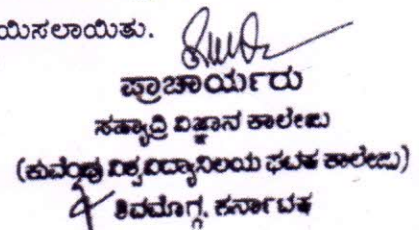 ಯಿಸಲಾಯಿತು.
ಪ್ರಾಚಾರ್ಯರು
ಸಹ್ಯಾದ್ರಿ ವಿಜ್ಞಾನ ಕಾಲೇಜು
(ಕುವೆಂಪು ವಿಶ್ವವಿದ್ಯಾನಿಲಯ ಘಟಕ ಕಾಲೇಜು)
ಶಿವಮೊಗ್ಗ, ಕರ್ನಾಟಕ